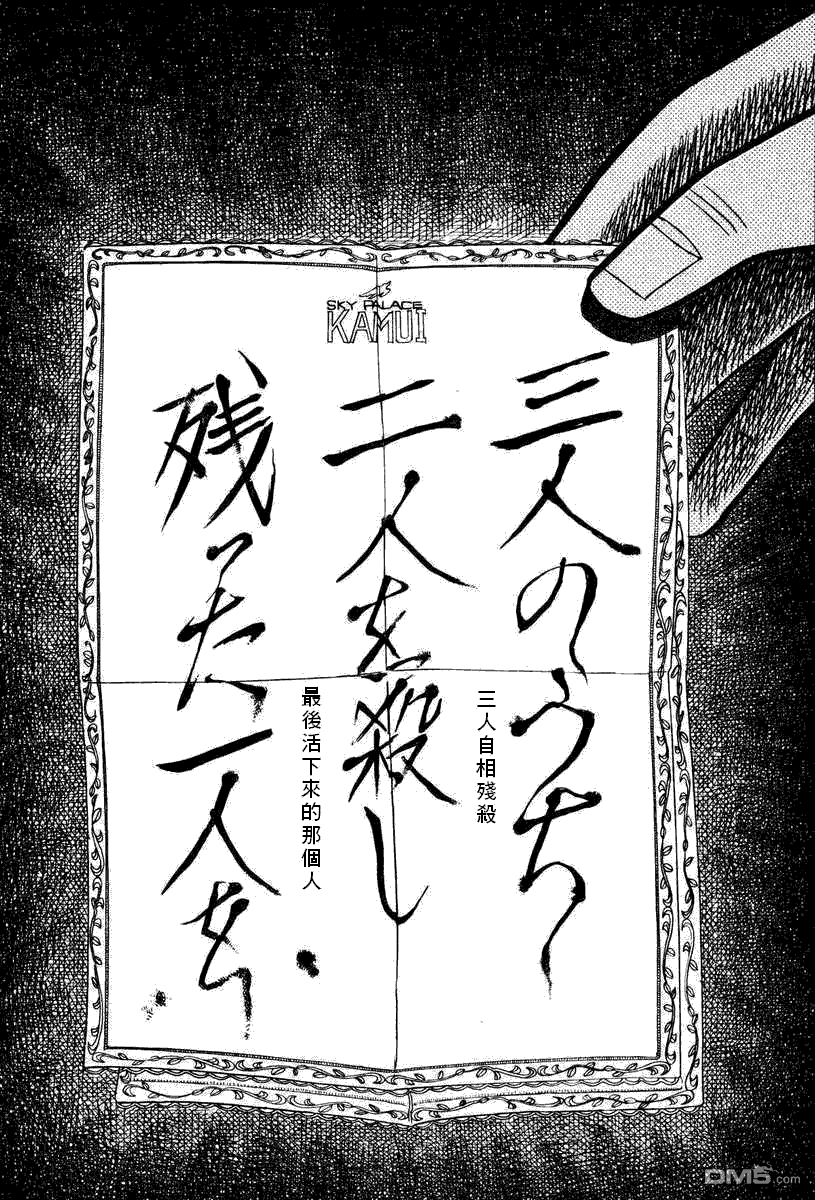 SKY PALACE
KAMUI
三人のうち
二人を殺し
残った一人を
三人自相殘殺
最後活下來的那個人
DM5.com